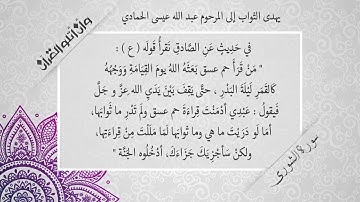 يهدى الثواب إلى المرحوم عبد الله عيسى الحمادي
وإذا تلوا القرآن
في حديث عن الصادق نقرأ قوله ( ع ) :
" من قرأ حم عسق بعثه الله يوم القيامة ووجهه
كالقمر ليلة البدر ، حتى يقف بين يدي الله عز و جل
فيقول : عبدي أدمنت قراءة حم عسق ولم تدر ما ثوابها،
أما لو دريت ما هي وما ثوابها لما مللت من قراءتها،
ولكن سأجزيك جزاءك، أدخلوه الجنة "
سورة الشورى